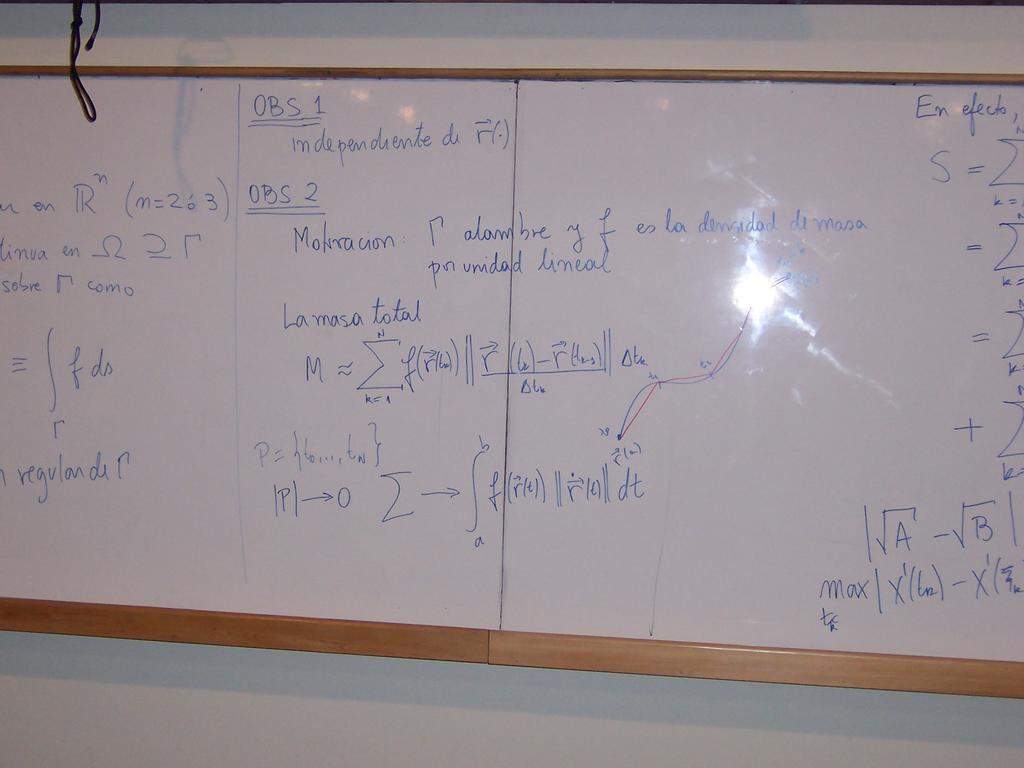 en ℝⁿ (n=2 ó 3)
en Ω ⊇ Γ
sobre Γ como
≡ ∫_Γ f ds
regular de Γ
OBS 1
independiente de r⃗(·)
OBS 2
Motivacion: Γ alambre y f es la densidad de masa
por unidad lineal
La masa total
M ≈ ∑_{k=1}^{N} f(r⃗(t_k)) ‖ (r⃗(t_k) − r⃗(t_{k-1})) / Δt_k ‖ Δt_k
P = {t₀, ..., t_N}
|P| → 0 ∑ → ∫_a^b f(r⃗(t)) ‖ṙ⃗(t)‖ dt
r⃗(a)
En efecto,
S = ∑
= ∑
= ∑
+ ∑
|√A − √B|
max_{t_k} | x'(t_k) − x'(ξ_k